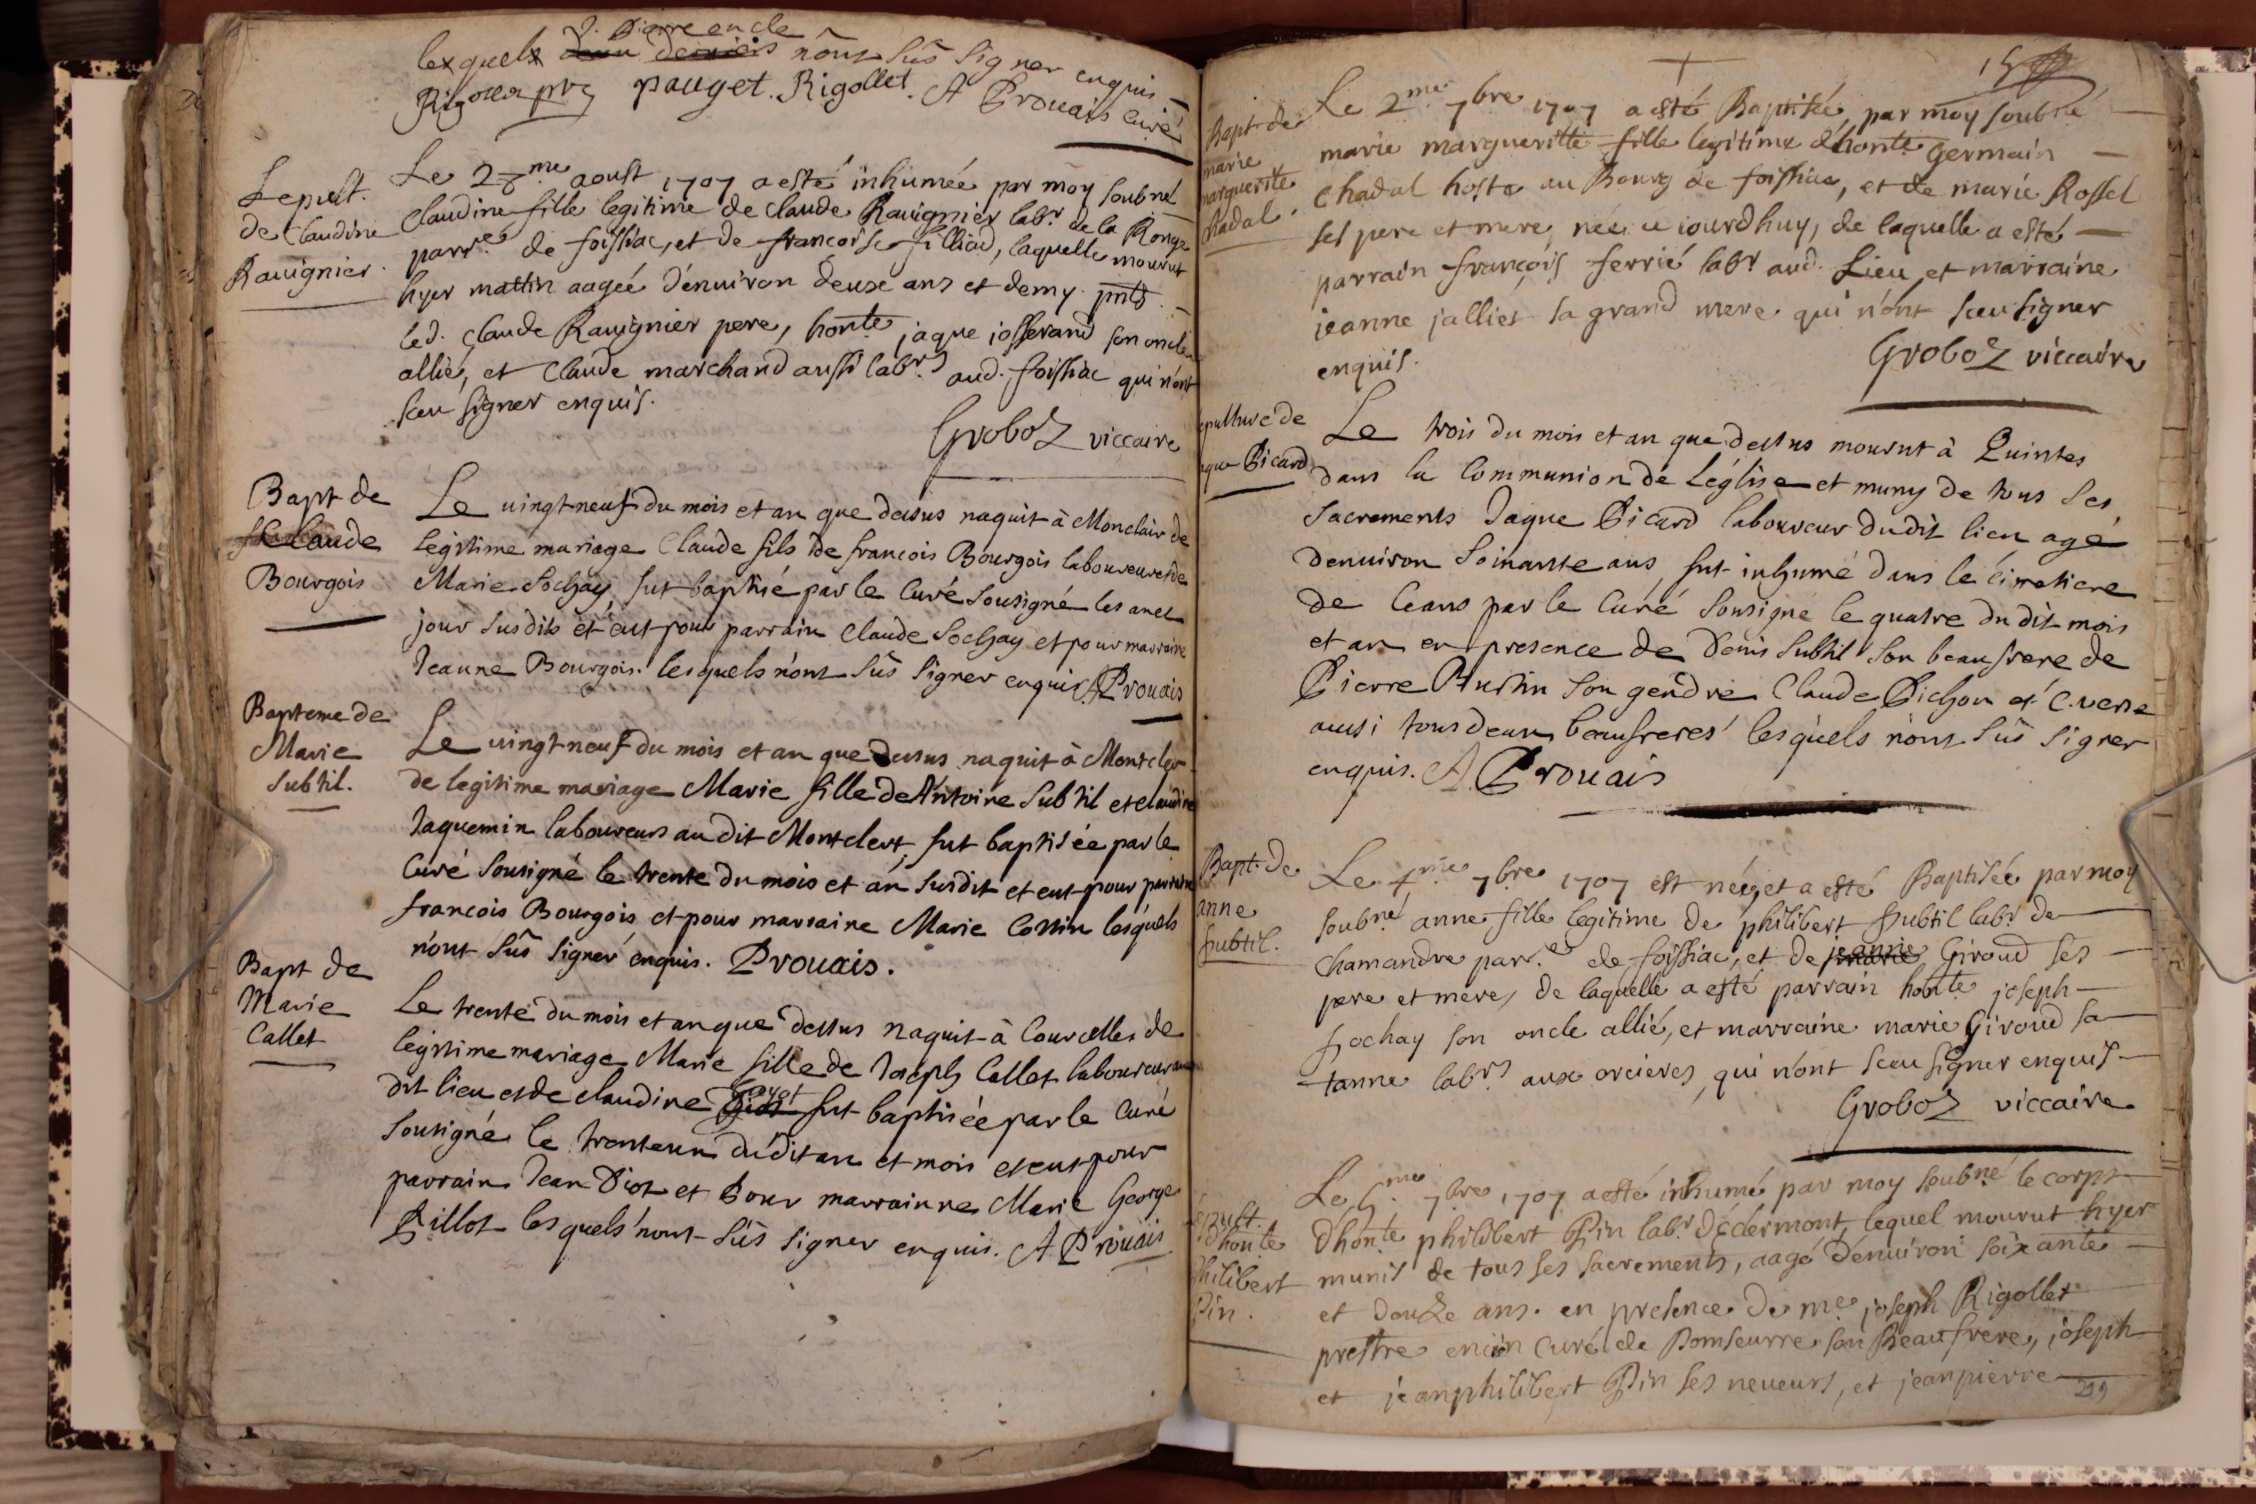 J. Pierre oncle
lexquels deux derniers n'ont sûs signer enquis
pauget. Rigollet. A Prouais curé
Sepult.
de Claudine
Rauignier.
Le 28me aoust 1707 a esté inhumée par moy soubné
Claudine fille legitime de Claude Rauignier labr de la Ronge
parre de foissiac, et de francoise filliad, laquelle mourut
hyer mattin aagée d'enuiron deux ans et demy pnts
led. Claude Rauignier pere, honte jaque josserand son oncle
allié, et Claude marchand aussi labrs aud. foissiac qui n'ont
sceu signer enquis.
Groboz viccaire
Bapt de
Claude
Bourgois
Le uingt neuf du mois et an que dessus naquit à Monclair de
legitime mariage Claude fils de francois Bourgois laboureur et de
Marie Sochay fut baptisé par le Curé sousigné les an et
jour susdits et eut pour parrain Claude Sochay et pour marraine
Jeanne Bourgois. lesquels n'ont sûs signer enquis A Prouais
Bapteme de
Marie
Subtil.
Le uingt neuf du mois et an que dessus naquit à Montcler
de legitime mariage Marie fille de Antoine Subtil et claudine
Jaquemin laboureurs au dit Montclert fut baptisée par le
Curé sousigné le trente du mois et an susdit et eut pour parrain
francois Bourgois et pour marraine Marie Cottin lesquels
n'ont sûs signer enquis. Prouais.
Bapt de
Marie
Callet
Le trente du mois et an que dessus naquit à Courcelles de
legitime mariage Marie fille de Joseph Callet laboureur au
dit lieu et de claudine fut baptisée par le Curé
sousigné le trenteun du dit an et mois et eut pour
parrain Jean Diot et pour marrainne Marie George
Pillot les quels n'ont sûs signer enquis. A Prouais
Bapt. de
marie
marguerite
Chadal.
Le 2me 7bre 1707 a esté Baptisée par moy soubné
marie margueritte fille legitime d'honte germain
Chadal hoste au Bourg de foissiac, et de marie Rossel
ses pere et mere, née ce jourdhuy, de laquelle a esté
parrain françois ferrié labr aud. Lieu et marraine
jeanne jallier sa grand mere qui n'ont sceu signer
enquis.
Groboz viccaire
epulture de
aque Picard
Le trois du mois et an que dessus mourut à Quintes
dans la Communion de L'église et muny de tous ses
sacrements Jaque Picard laboureur dudit lieu agé
denuiron soixante ans, fut inhumé dans le cimetiere
de Ceans par le Curé sousigné le quatre du dit mois
et an en presence de Denis Subtil son beaufrere de
Pierre son gendre Claude Pichon et
aussi tous deux beaufreres lesquels n'ont sûs signer
enquis. A Prouais
Bapt. de
anne
subtil.
Le 4me 7bre 1707 est née, et a esté Baptisée par moy
soubné anne fille legitime de philibert subtil labr de
chamandre parre de foissiac, et de jeanne Giroud ses
pere et mere, de laquelle a esté parrain honte joseph
sochay son oncle allié, et marraine marie Giroud sa
tanne labrs aux orcieres, qui n'ont sceu signer enquis
Groboz viccaire
epult.
d'honte
philibert
Pin.
Le 1707 a esté inhumé par moy soubné le corps
d'honte philibert Pin labr declermont, lequel mourut hyer
munis de tous ses sacrements, aagé d'enuiron soixante
et douze ans. en presence de me joseph Rigollet
prestre curé de son Beaufrere, joseph
et jeanphilibert Pin ses neueurs, et jeanpierre
299